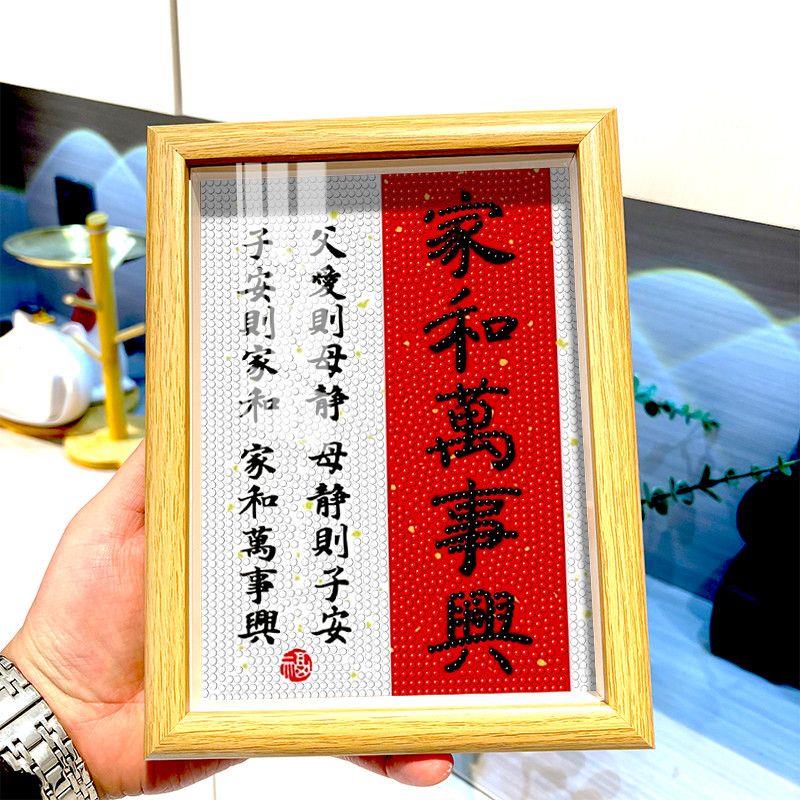 家和萬事興
父愛則母静 母静則子安
子安則家和 家和萬事興
福